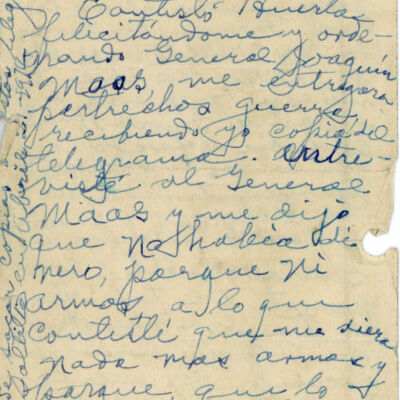 Contestó Huerta
felicitándome y orde-
nando General Joaquín
Maas, me entregara
pertrechos guerra,
recibiendo yo copia del
telegrama. Entre-
visté al General
Maas y me dijo
que no había di
nero, porque ni
armas, a lo que
contesté que me diera
nada mas armas y
parque, que lo